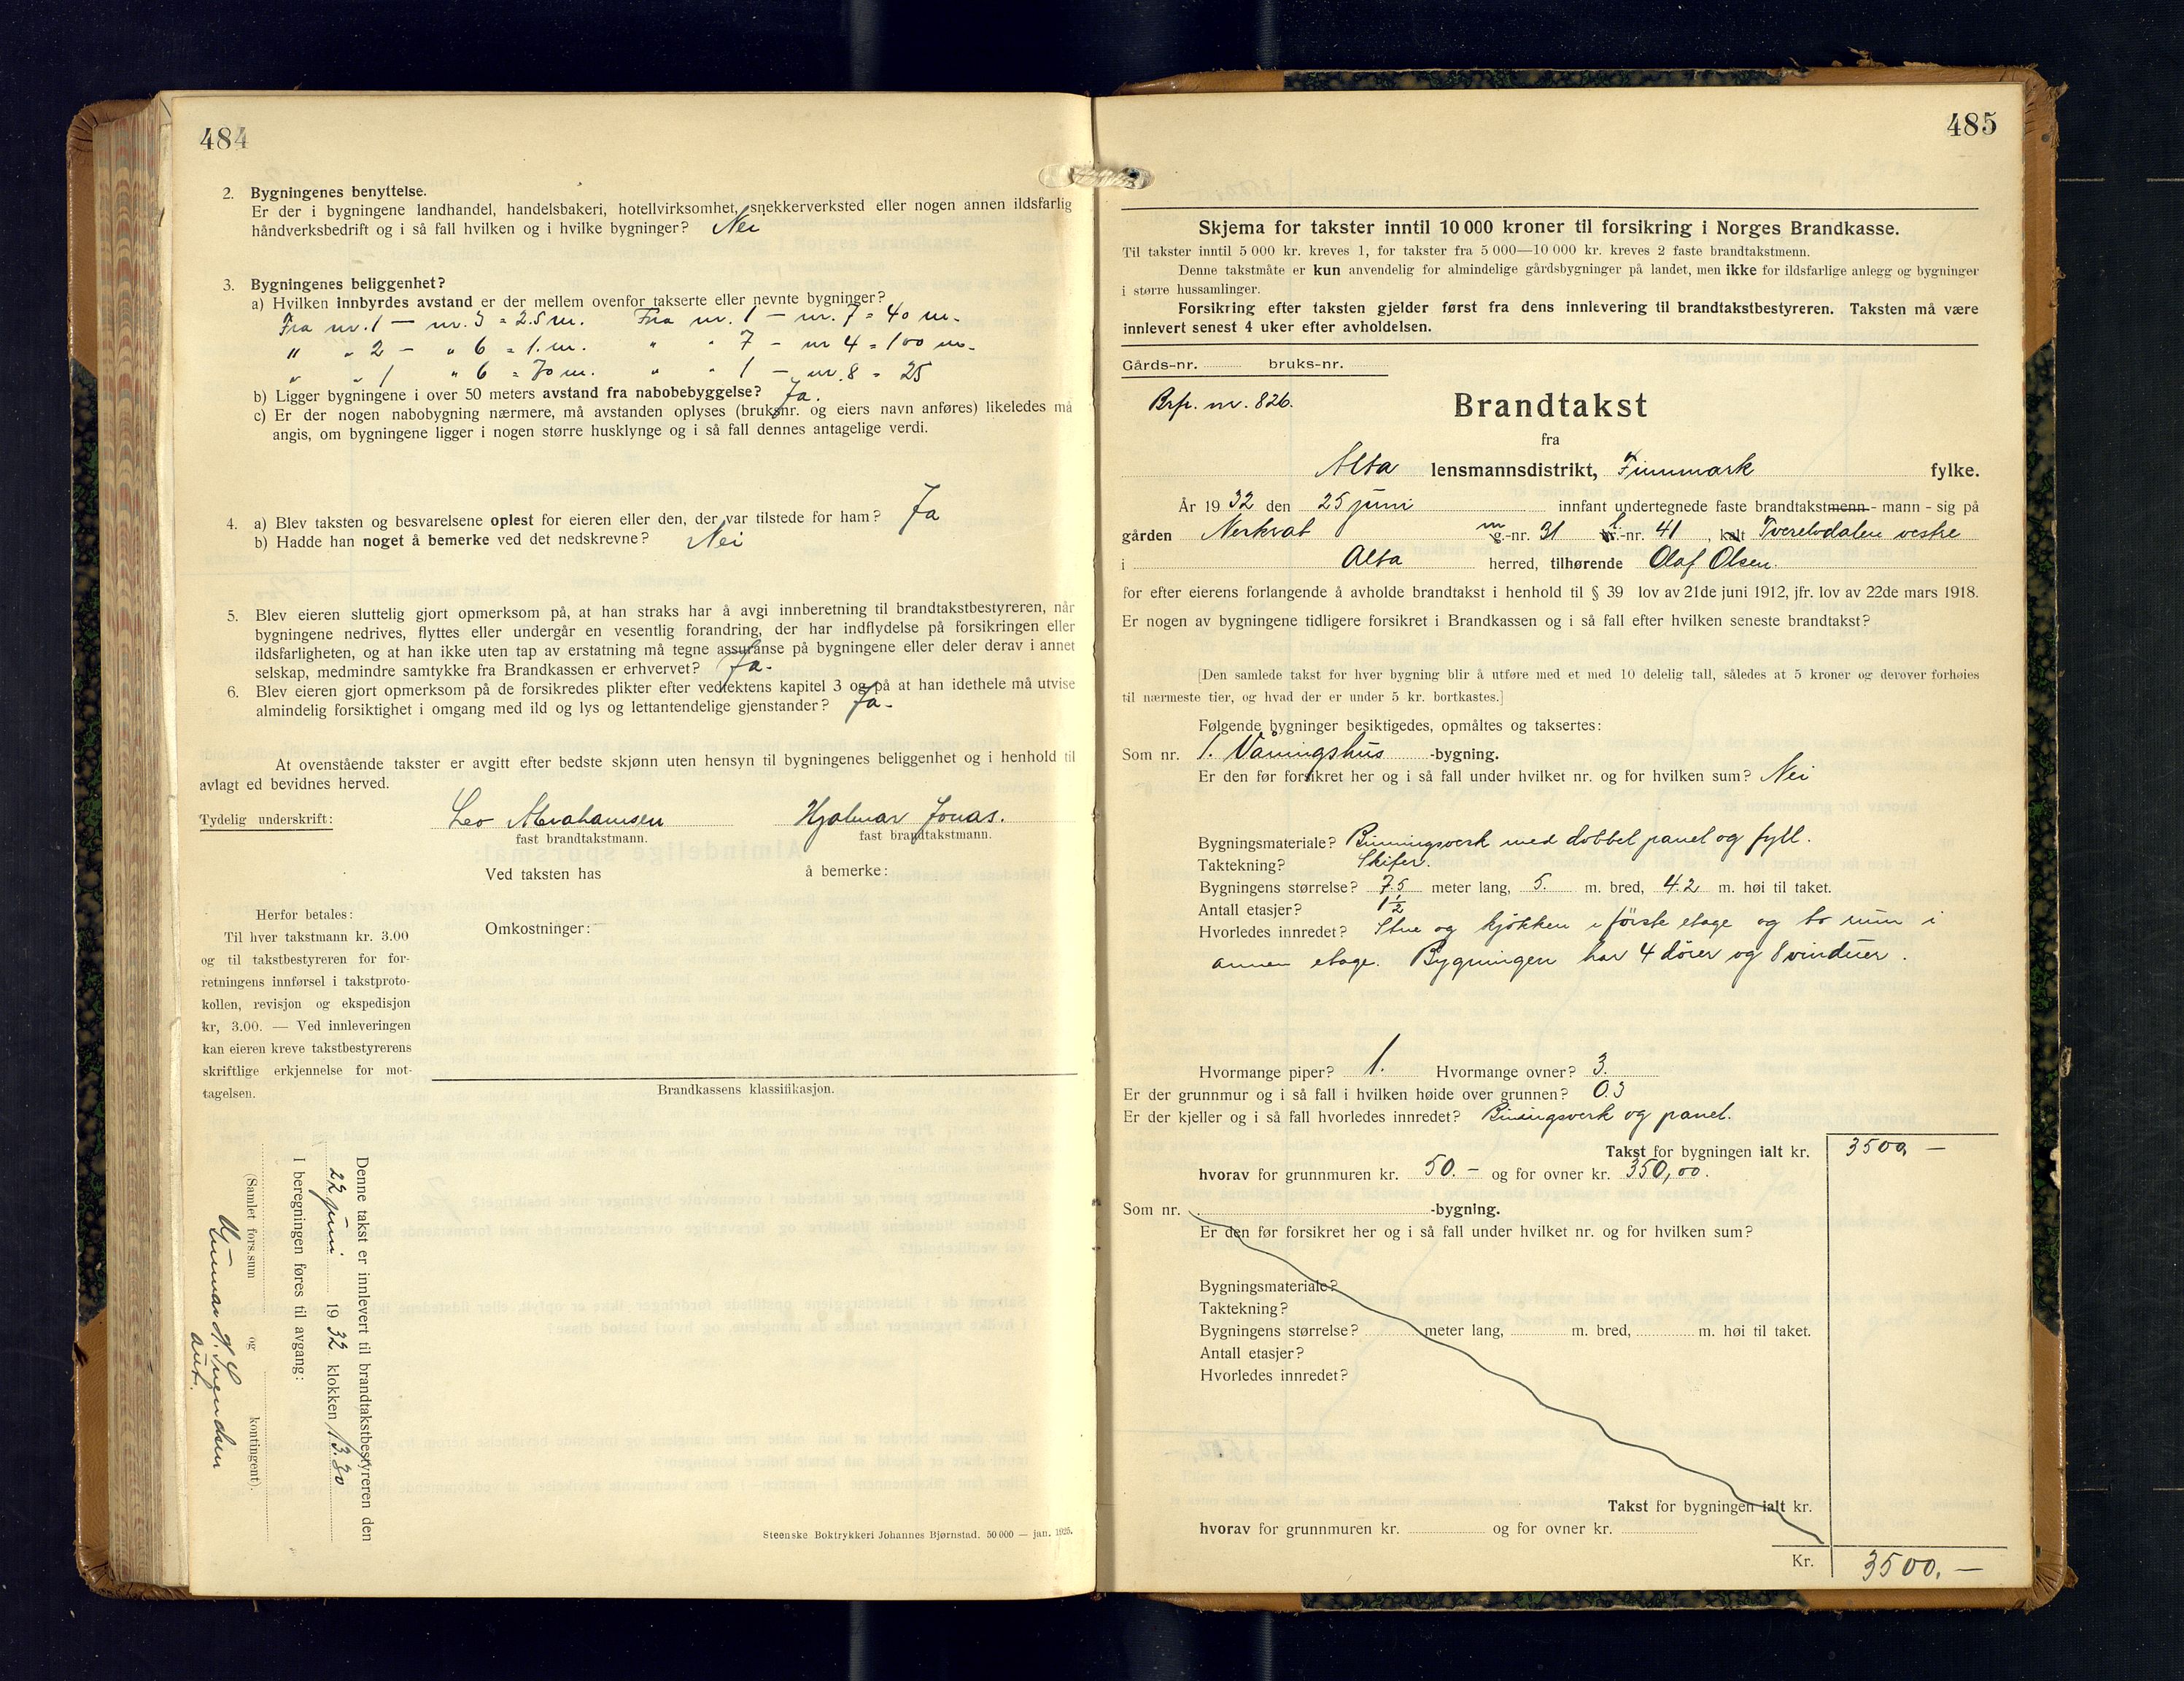 484
2. Bygningenes benyttelse.
Er der i bygningene landhandel, handelsbakeri, hotellvirksomhet, snekkerverksted eller nogen annen ildsfarlig
håndverksbedrift og i så fall hvilken og i hvilke bygninger? Nei
3. Bygningenes beliggenhet?
a) Hvilken innbyrdes avstand er der mellem ovenfor takserte eller nevnte bygninger?
Fra nr. 1 — nr. 3 = 2.5 m. Fra nr. 1 — nr. 7 = 40 m.
" " 2 — " 6 = 1. m. " " 7 — nr 4 = 100 m.
" " 1 " 6 = 70 m. " " 1 — nr. 8 = 25
b) Ligger bygningene i over 50 meters avstand fra nabobebyggelse? Ja.
c) Er der nogen nabobygning nærmere, må avstanden oplyses (bruksnr. og eiers navn anføres) likeledes må
angis, om bygningene ligger i nogen større husklynge og i så fall dennes antagelige verdi.
4. a) Blev taksten og besvarelsene oplest for eieren eller den, der var tilstede for ham? Ja
b) Hadde han noget å bemerke ved det nedskrevne? Nei
5. Blev eieren sluttelig gjort opmerksom på, at han straks har å avgi innberetning til brandtakstbestyreren, når
bygningene nedrives, flyttes eller undergår en vesentlig forandring, der har indflydelse på forsikringen eller
ildsfarligheten, og at han ikke uten tap av erstatning må tegne assuranse på bygningene eller deler derav i annet
selskap, medmindre samtykke fra Brandkassen er erhvervet? Ja.
6. Blev eieren gjort opmerksom på de forsikredes plikter efter vedtektens kapitel 3 og på at han idethele må utvise
almindelig forsiktighet i omgang med ild og lys og lettantendelige gjenstander? Ja.
At ovenstående takster er avgitt efter bedste skjønn uten hensyn til bygningenes beliggenhet og i henhold til
avlagt ed bevidnes herved.
Tydelig underskrift: Leo Abrahamsen Hjalmar Jonas.
fast brandtakstmann. fast brandtakstmann.
Ved taksten has å bemerke:
Omkostninger:
Herfor betales:
Til hver takstmann kr. 3.00
og til takstbestyreren for for-
retningens innførsel i takstproto-
kollen, revisjon og ekspedisjon
kr, 3.00. — Ved innleveringen
kan eieren kreve takstbestyrerens
skriftlige erkjennelse for mot-
tagelsen.
Brandkassens klassifikasjon.
Denne takst er innlevert til brandtakstbestyreren den
22 juni 1932 klokken 13.30
I beregningen føres til avgang:
(Samlet fors.sum og kontingent).
aut.
Steenske Boktrykkeri Johannes Bjørnstad. 50 000 — jan. 1925.
485
Skjema for takster inntil 10 000 kroner til forsikring i Norges Brandkasse.
Til takster inntil 5 000 kr. kreves 1, for takster fra 5 000—10 000 kr. kreves 2 faste brandtakstmenn.
Denne takstmåte er kun anvendelig for almindelige gårdsbygninger på landet, men ikke for ildsfarlige anlegg og bygninger
i større hussamlinger.
Forsikring efter taksten gjelder først fra dens innlevering til brandtakstbestyreren. Taksten må være
innlevert senest 4 uker efter avholdelsen.
Gårds-nr. bruks-nr.
Brf. nr. 826.
Brandtakst
fra
Alta lensmannsdistrikt, Finnmark fylke.
År 1932 den 25 juni innfant undertegnede faste brandtakstmenn - mann - sig på
gården Nerkvat m g.-nr. 31 l br.-nr. 41, kalt Tverelvdalen vestre
i Alta herred, tilhørende Olaf Olsen.
for efter eierens forlangende å avholde brandtakst i henhold til § 39 lov av 21de juni 1912, jfr. lov av 22de mars 1918.
Er nogen av bygningene tidligere forsikret i Brandkassen og i så fall efter hvilken seneste brandtakst?
[Den samlede takst for hver bygning blir å utføre med et med 10 delelig tall, således at 5 kroner og derover forhøies
til nærmeste tier, og hvad der er under 5 kr. bortkastes.]
Følgende bygninger besiktigedes, opmåltes og taksertes:
Som nr. 1. Våningshus -bygning.
Er den før forsikret her og i så fall under hvilket nr. og for hvilken sum? Nei
Bygningsmateriale? Binningsverk med dobbel panel og fyll.
Taktekning? Skifer.
Bygningens størrelse? 7.5 meter lang, 5. m. bred, 4.2 m. høi til taket.
Antall etasjer? 1 ½
Hvorledes innredet? Stue og kjøkken i første etage og to rum i
annen etage. Bygningen har 4 dører og 8 vinduer.
Hvormange piper? 1. Hvormange ovner? 3.
Er der grunnmur og i så fall i hvilken høide over grunnen? 0.3
Er der kjeller og i så fall hvorledes innredet? Biningsverk og panel.
Takst for bygningen ialt kr. 3500, —
hvorav for grunnmuren kr. 50. - og for ovner kr. 350,00.
Som nr. -bygning.
Er den før forsikret her og i så fall under hvilket nr. og for hvilken sum?
Bygningsmateriale?
Taktekning?
Bygningens størrelse? meter lang, m. bred, m. høi til taket.
Antall etasjer?
Hvorledes innredet?
Takst for bygningen ialt kr.
hvorav for grunnmuren kr. og for ovner kr.
Kr. 3500. —